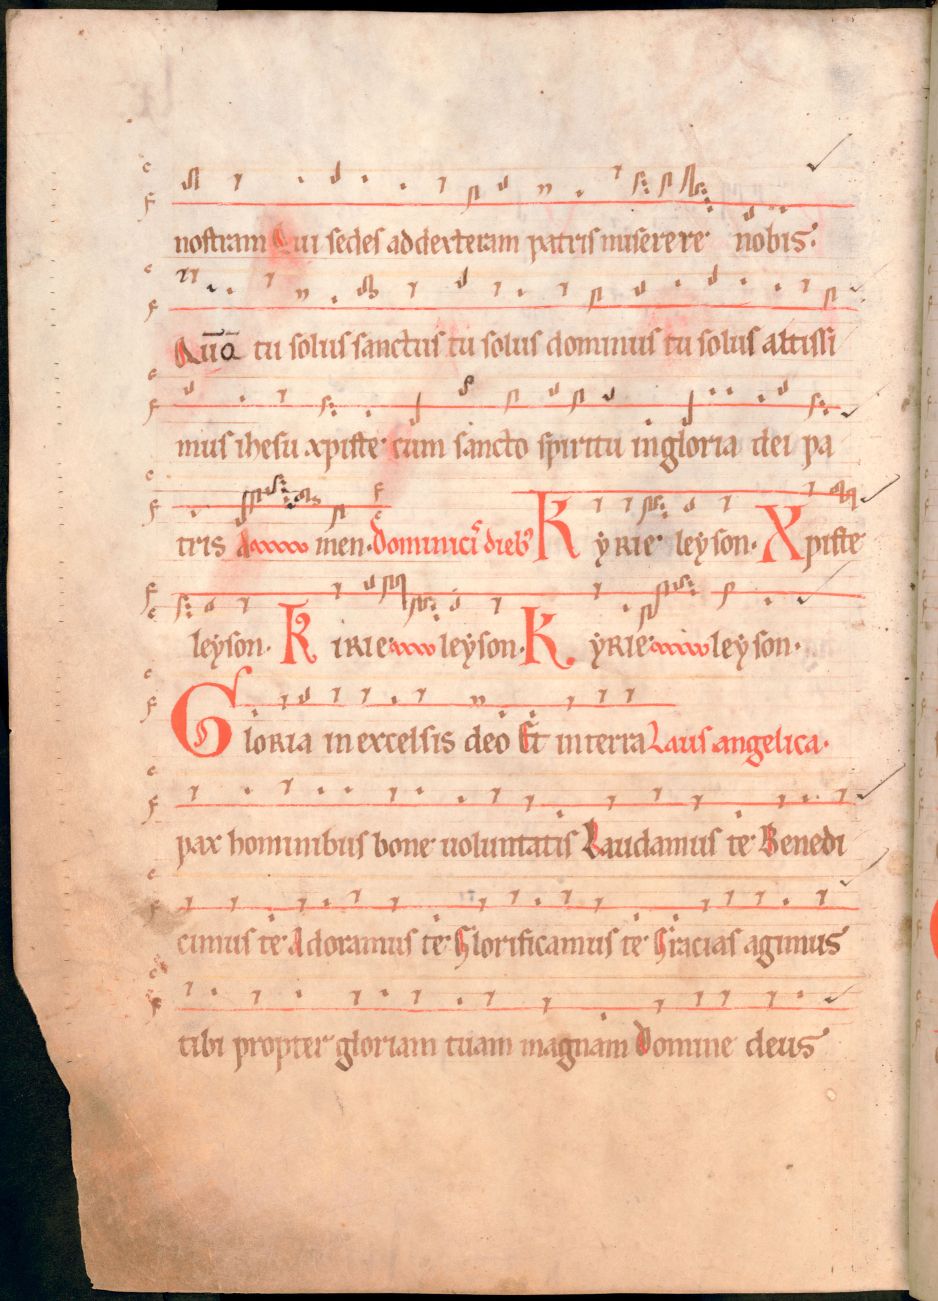 nostram Qui sedes ad dexteram patris miserere nobis.
Qūō tu solus sanctus tu solus dominus tu solus altissi
mus ihesu xpiste cum sancto spiritu in gloria dei pa
tris A men. Dominic dieb Kyrie leyson. Xpiste
leyson. Kirie leyson. Kyrie leyson.
Gloria in excelsis deo Et in terra Laus angelica.
pax hominibus bone uoluntatis Laudamus te Benedi
cimus te Adoramus te Glorificamus te Gracias agimus
tibi propter gloriam tuam magnam Domine deus